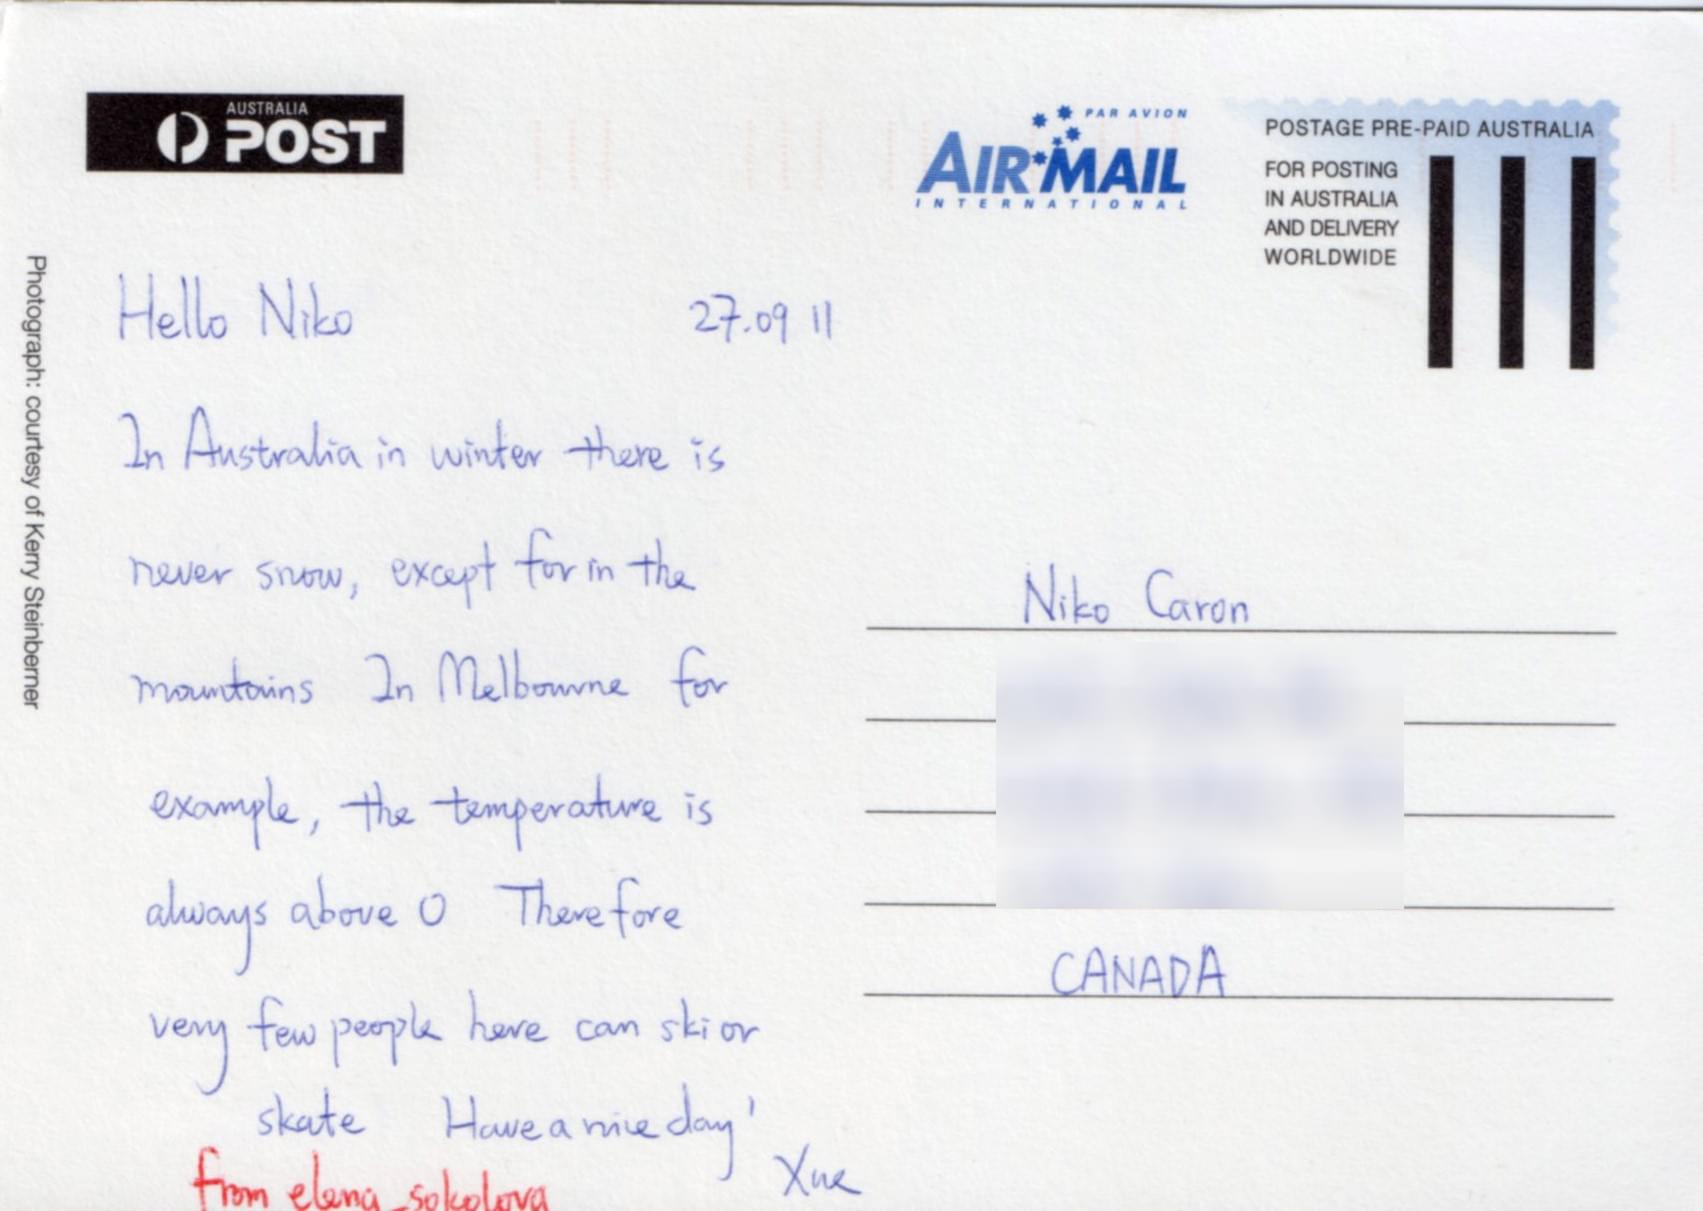 AUSTRALIA
POST
PAR AVION
AIR MAIL
INTERNATIONAL
POSTAGE PRE-PAID AUSTRALIA
FOR POSTING
IN AUSTRALIA
AND DELIVERY
WORLDWIDE
Photograph: courtesy of Kerry Steinberner
Hello Niko 27.09 11
In Australia in winter there is
never snow, except for in the
mountains In Melbourne for
example, the temperature is
always above 0 Therefore
very few people here can ski or
skate Have a nice day'
Xue
from elena_sokolova
Niko Caron
CANADA